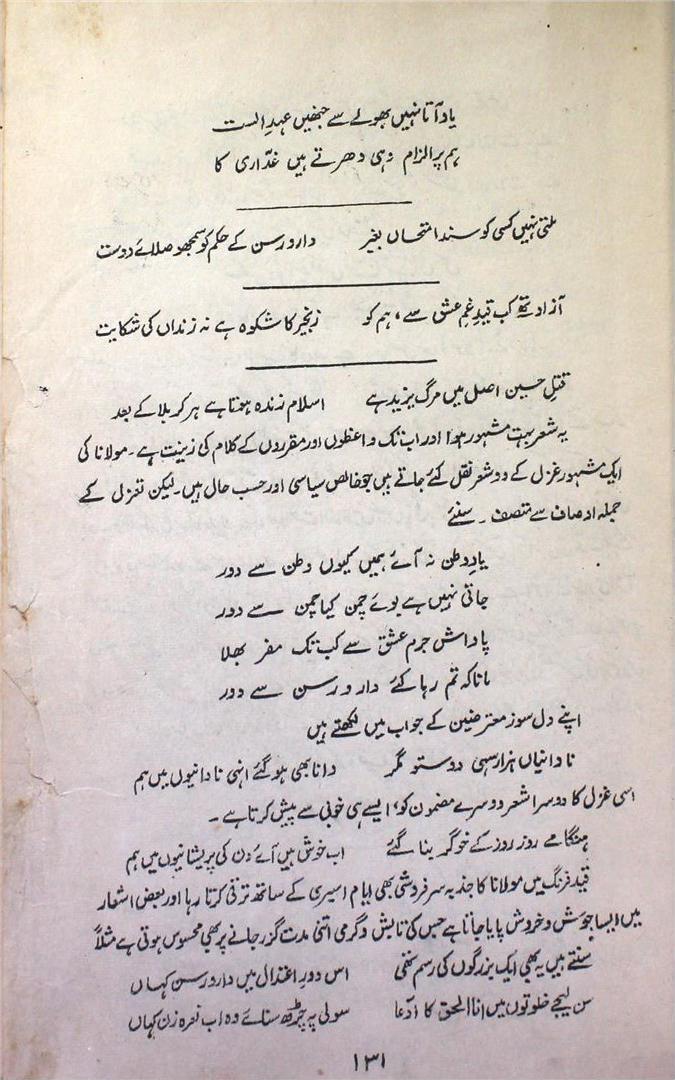 یاد آتا نہیں بھولے سے جنھیں عہدِ الست
ہم پر الزام وہی دھرتے ہیں غدّاری کا
ملتی نہیں کسی کو سند امتحاں بغیر دار و رسن کے حکم کو سمجھو صلائے دوست
آزاد تھے کب قیدِ غمِ عشق سے، ہم کو زنجیر کا شکوہ ہے نہ زنداں کی شکایت
قتلِ حسین اصل میں مرگِ یزید ہے اسلام زندہ ہوتا ہے ہر کربلا کے بعد
یہ شعر بہت مشہور ہوا اور اب تک واعظوں اور مقرروں کے کلام کی زینت ہے۔ مولانا کی
ایک مشہور غزل کے دو شعر نقل کئے جاتے ہیں جو خالص سیاسی اور حسب حال ہیں۔ لیکن تغزل کے
جملہ اوصاف سے متصف۔ سنئے
یادِ وطن نہ آئے ہمیں کیوں وطن سے دور
جاتی نہیں ہے بوئے چمن کیا چمن سے دور
پاداش جرم عشق سے کب تک مفر بھلا
مانا کہ تم رہا کئے دار و رسن سے دور
اپنے دل سوز معترضین کے جواب میں لکھتے ہیں
نادانیاں ہزار سہی دوستو مگر دانا بھی ہو گئے انہی نادانیوں میں ہم
اسی غزل کا دوسرا شعر دوسرے مضمون کو، ایسے ہی خوبی سے پیش کرتا ہے۔
ہنگامے روز روز کے خوگر بنا گئے اب خوش ہیں آئے دن کی پریشانیوں میں ہم
قید فرنگ میں مولانا کا جذبہ سرفروشی بھی ایام اسیری کے ساتھ ترقی کرتا رہا اور بعض اشعار
میں ایسا جوش و خروش پایا جاتا ہے جس کی تابش و گرمی اتنی مدت گزر جانے پر بھی محسوس ہوتی ہے مثلاً
سنتے ہیں یہ بھی ایک بزرگوں کی رسم تھی اس دورِ اعتدال میں دار و رسن کہاں
سن لیجے خلوتوں میں انا الحق کا ادّعا سولی پہ چڑھ سنائے وہ اب نعرہ زن کہاں
۱۳۱